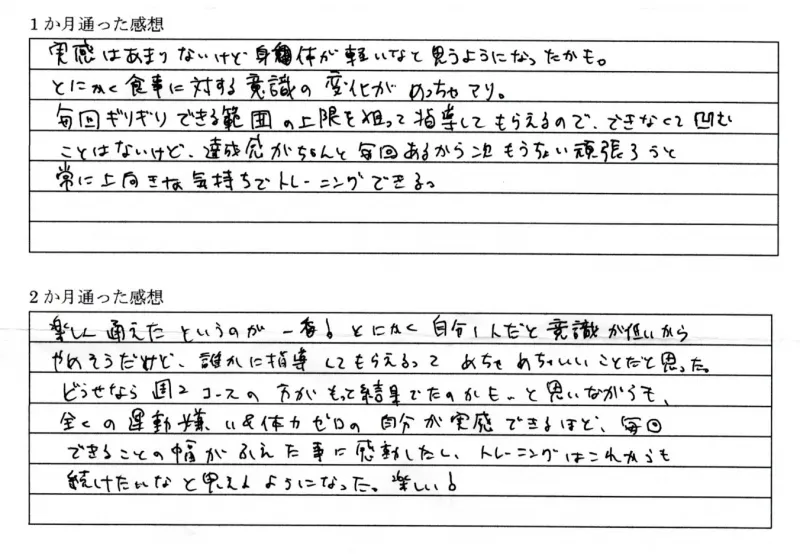 1か月通った感想
実感はあまりないけど身体が軽いなと思うようになったかも。
とにかく食事に対する意識の変化がめっちゃアリ。
毎回ギリギリできる範囲の上限を狙って指導してもらえるので、できなくて凹む
ことはないけど、達成感がちゃんと毎回あるから次もうちょい頑張ろうと
常に上向きな気持ちでトレーニングできる。
2か月通った感想
楽しく通えたというのが一番!とにかく自分1人だと意識が低いから
やめそうだけど、誰かに指導してもらえるってめちゃめちゃいいことだと思った。
どうせなら週2コースの方がもっと結果でたのかも…と思いながらも、
全くの運動嫌い&体力ゼロの自分が実感できるほど、毎回
できることの幅がふえた事に感動したし、トレーニングはこれからも
続けたいなと思えるようになった。楽しい!